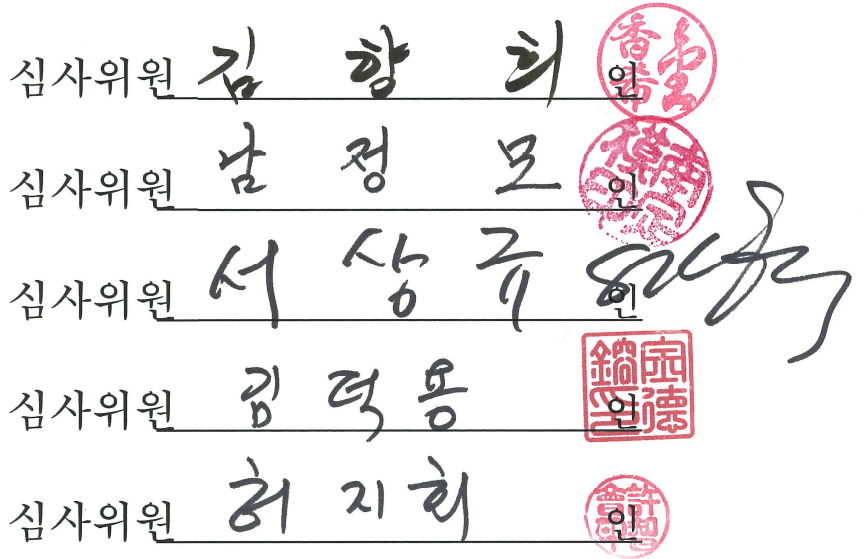 심사위원 김 향 희 인
심사위원 남 정 모 인
심사위원 서 상 규 인
심사위원 김 덕 용 인
심사위원 허 지 회 인